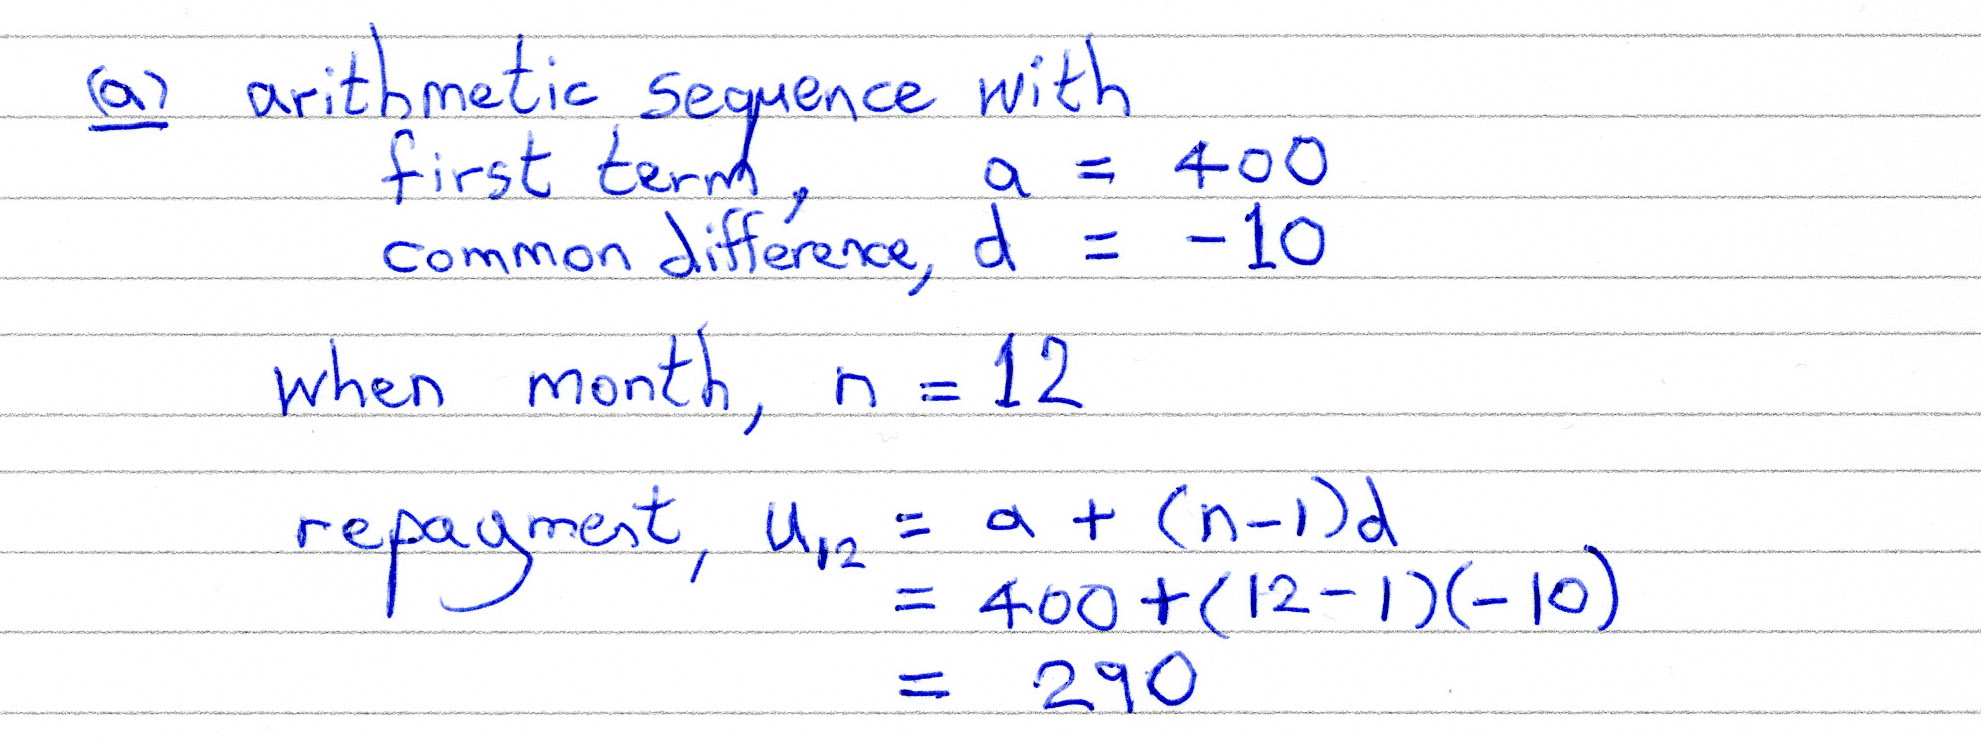 (a) arithmetic sequence with
first term, a = 400
common difference, d = -10
when month, n = 12
repayment, u₁₂ = a + (n-1)d
= 400 + (12-1)(-10)
= 290